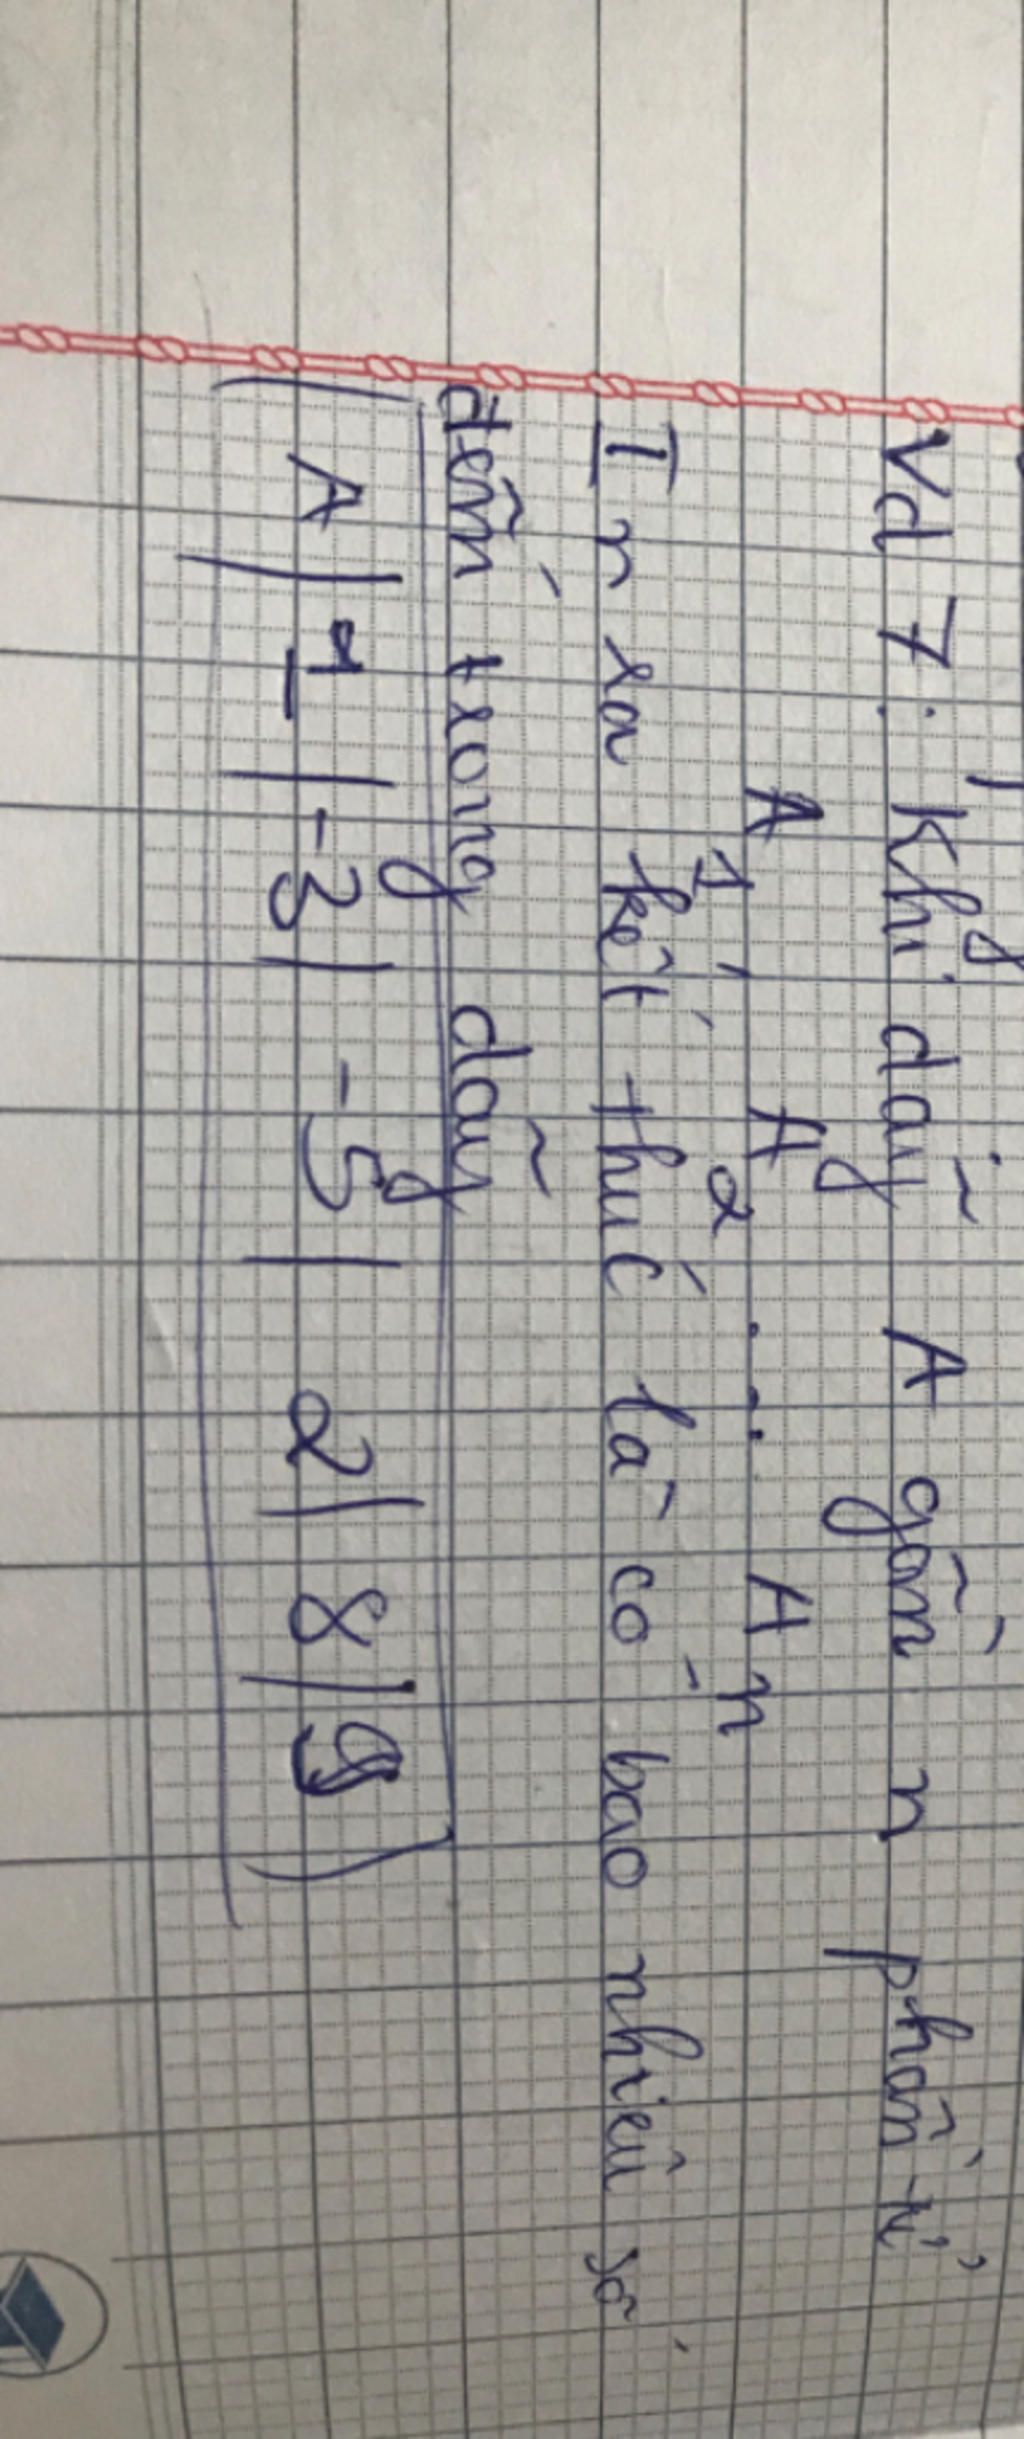 Vd 7: Khi dãy A gồm n phần tử
A1, A2 ... An
In ra kết thúc là có bao nhiêu số
đếm trong dãy
A | 1 | -3 | -5 | 2 | 8 | 9